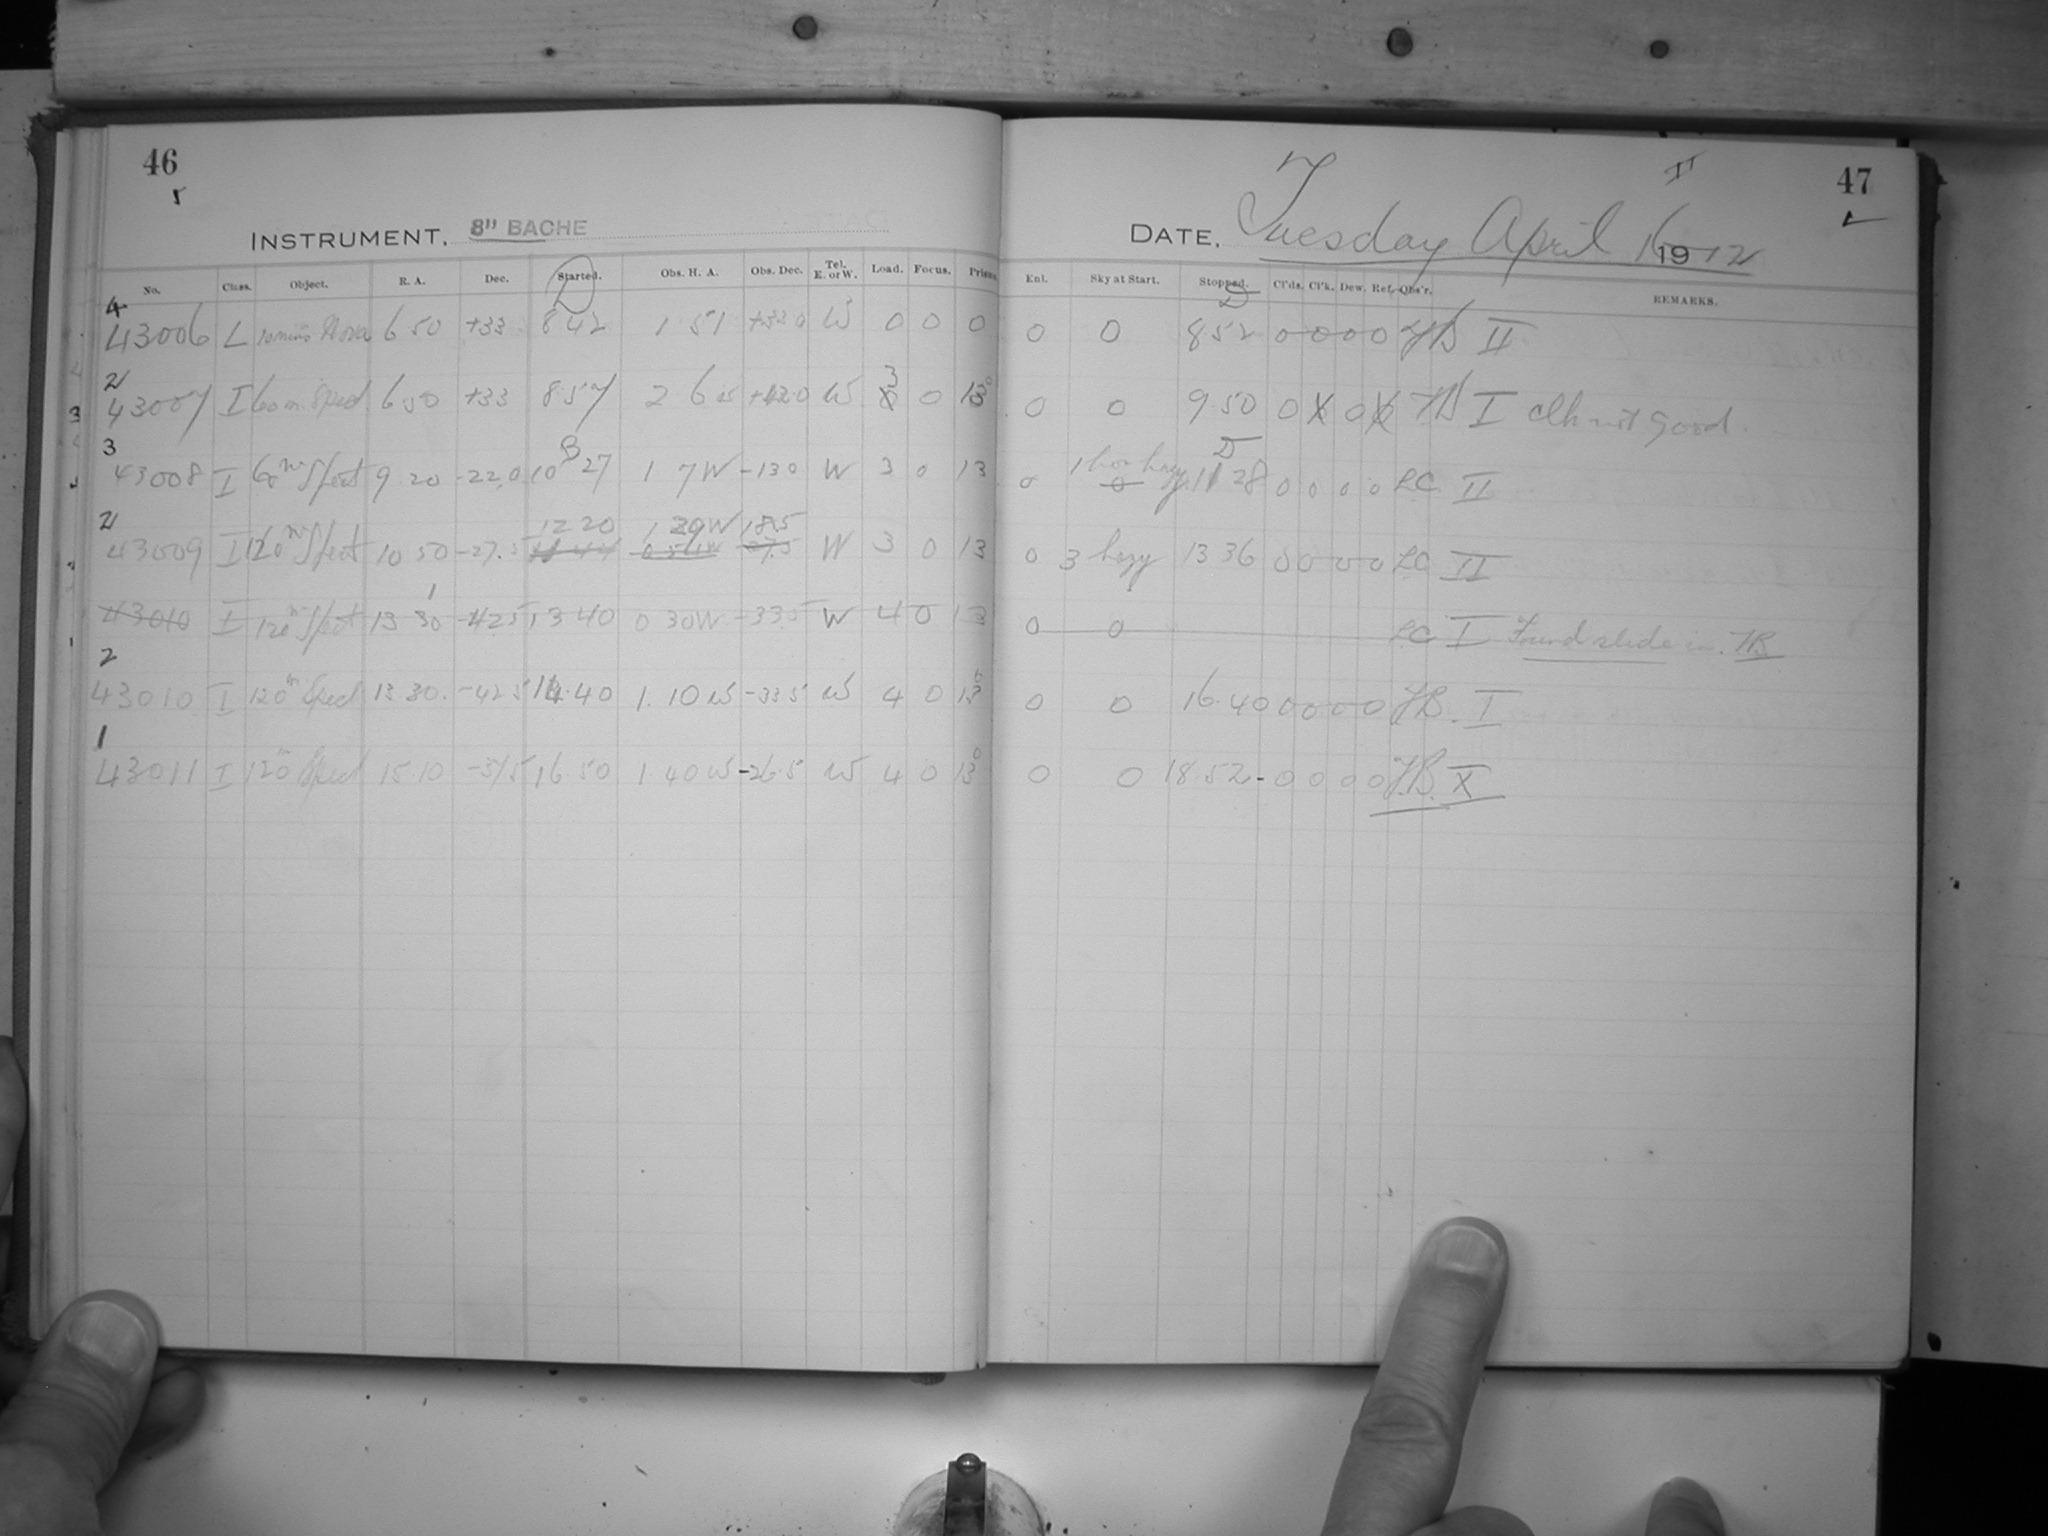 46
INSTRUMENT, 8" BACHE
No. Class. Object. R. A. Dec. Started. Obs. H. A. Obs. Dec. Tel. E. or W. Load. Focus. Prism.
4
43006 L 10 mins Nova 6 50 +33 8 42 1 51 +33 0 W 0 0 0
2
43007 I 60 m. Spect 6 50 +33 8 57 2 6 W 3 0 13°
3
43008 I 60m Spect 9 20 -22.0 10 27 1 7W -13 0 W 3 0 13
2
12 20 1 29W 18.5
43009 I 120m Spect 10 50 -27.5 W 3 0 13
43010 I 120m Spect 13 30 -42.5 13 40 0 30W -33.5 W 4 0 13
2
43010 I 120m Spect 13 30. -42 5 14.40 1. 10 W -33 5 W 4 0 13°
1
43011 I 120m Spect 15.10 -37.5 16 50 1 40 W -26.5 W 4 0 13°
47
II
DATE, Tuesday April 16 1912
Enl. Sky at Start. Stopped. Cl'ds. Cl'k. Dew. Ref. Obs'r. REMARKS.
D
0 0 8 52 0 0 0 0 II
0 0 9.50 0 0 I Clk not good.
D
0 1 hazy 11 28 0 0 0 0 LC II
0 3 hazy 13 36 0 0 0 0 LC II
0 0 LC I Found slide in.
0 0 16.40 0 0 0 0 I
0 0 18.52 - 0 0 0 0 X